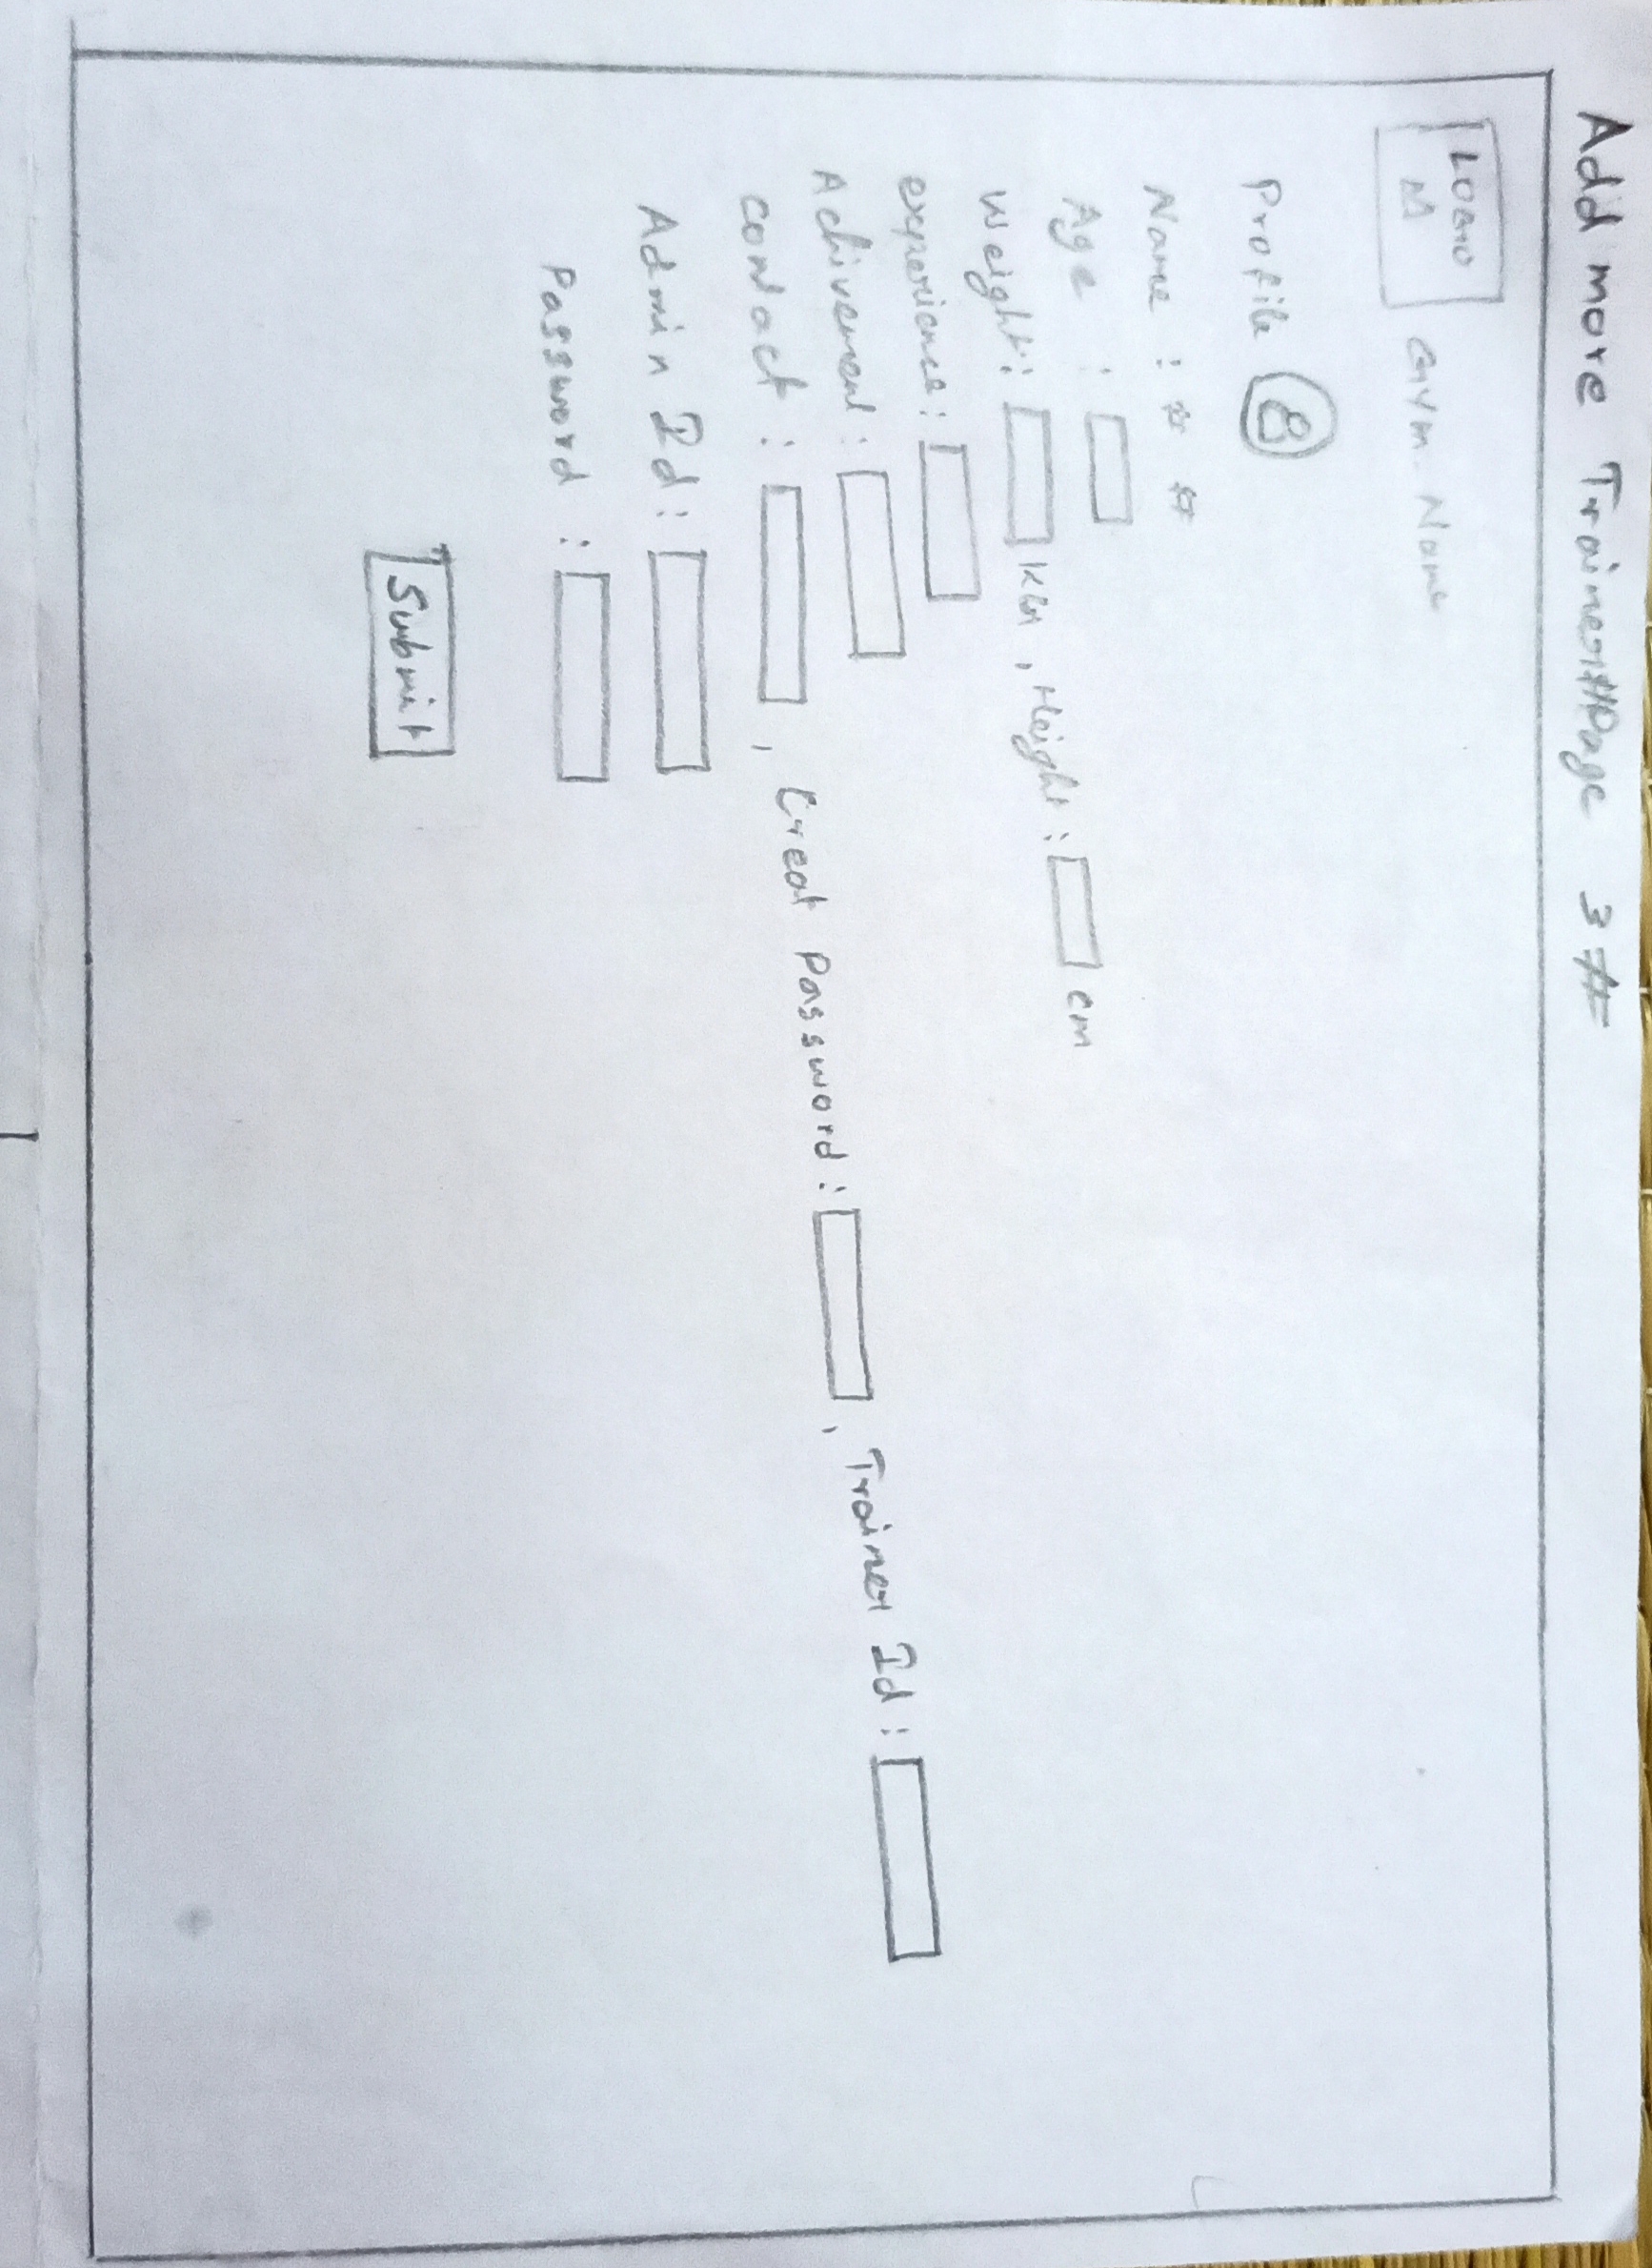 Add more Trainer##Page 3#
LOGO
M
Gym. Name
Profile
Name : * *
Age :
Weight : KG , Height : cm
experience :
Achivement :
contact : , Creat Password : , Trainer Id :
Admin Id :
Password :
Submit